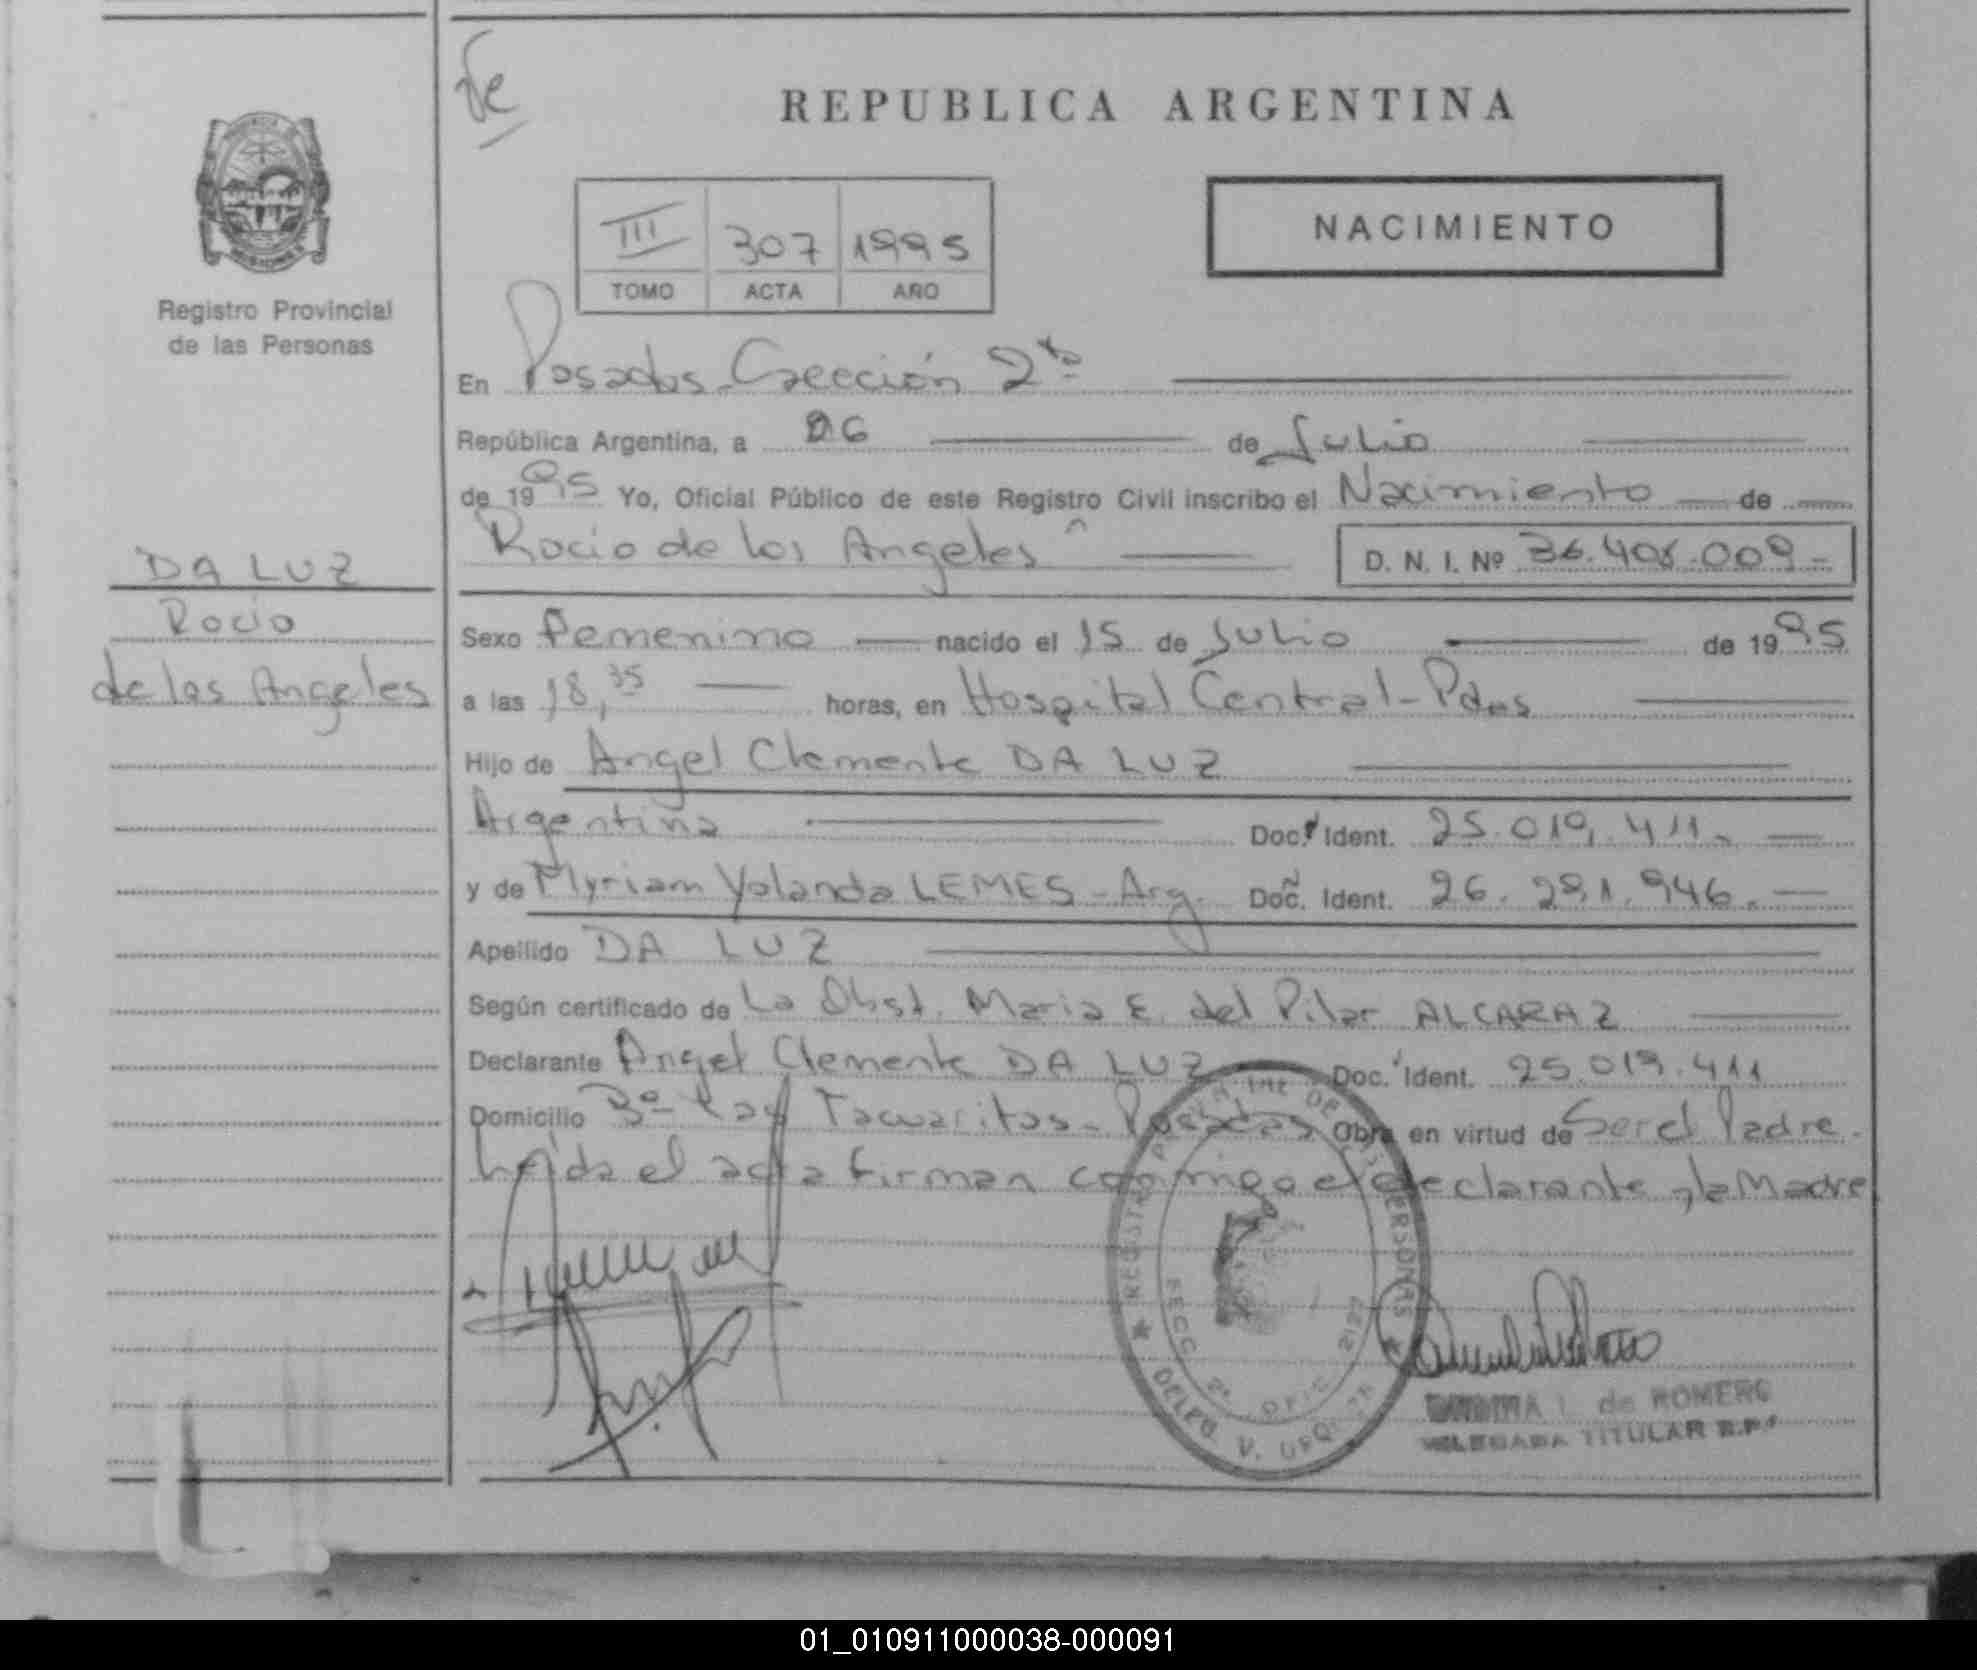 REPUBLICA ARGENTINA
NACIMIENTO
III 307 1995
TOMO ACTA AÑO
Registro Provincial
de las Personas
En Posadas - Sección 2da
República Argentina, a 26 de Julio
de 1995 Yo, Oficial Público de este Registro Civil inscribo el Nacimiento de
Rocio de los Angeles D. N. I. Nº 36.408.009-
DA LUZ
Rocio
de los Angeles
Sexo Femenino nacido el 15 de Julio de 1995
a las 18,35 horas, en Hospital Central - Pdas
Hijo de Angel Clemente DA LUZ
Argentina Doc. Ident. 25.019.411.
y de Myriam Yolanda LEMES - Arg. Doc. Ident. 26.291.946.
Apellido DA LUZ
Según certificado de La Obst. Maria E. del Pilar ALCARAZ
Declarante Angel Clemente DA LUZ Doc. Ident. 25.019.411
Domicilio Bº Las Tacuaritas - Posadas Obra en virtud de Ser el Padre.
Leida el acta firman conmigo el declarante y la Madre
REGISTRO DE PERSONAS
SECC. 2ª OFIC. 2127
DELEG. V. URQUIZA
L. de ROMERO
DELEGADA TITULAR R.P.
01_010911000038-000091